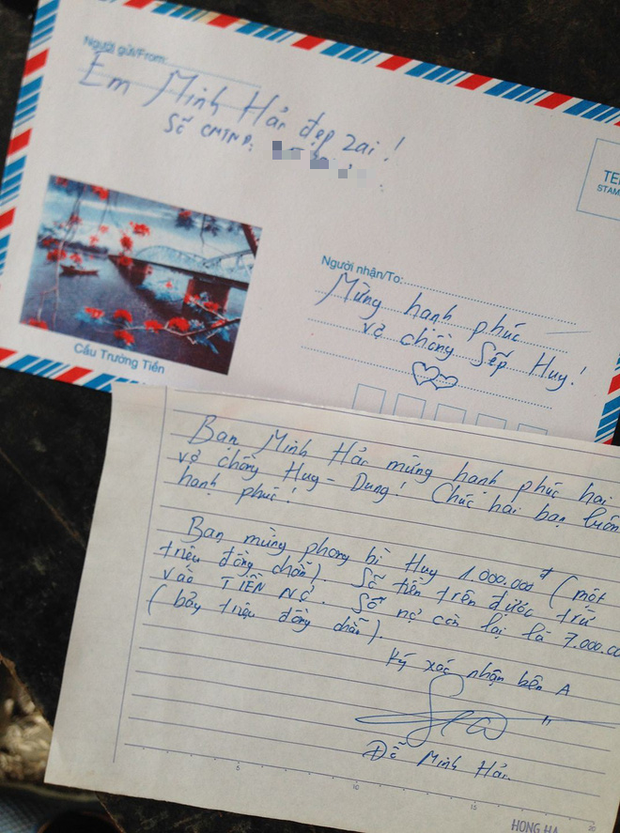 Người gửi/From:
Em Minh Hải đẹp zai!
Số CMTND:
TE
STAM
Cầu Trường Tiền
Người nhận/To:
Mừng hạnh phúc
vợ chồng Sếp Huy!
Bạn Minh Hải mừng hạnh phúc hai
vợ chồng Huy - Dung! Chúc hai bạn luôn
hạnh phúc!
Bạn mừng phong bì Huy 1.000.000đ (một
triệu đồng chẵn). Số tiền trên được trừ
vào TIỀN NỢ. Số nợ còn lại là 7.000.00
(bảy triệu đồng chẵn).
Ký xác nhận bên A
Đỗ Minh Hải
5 10 15 20
HONG HA